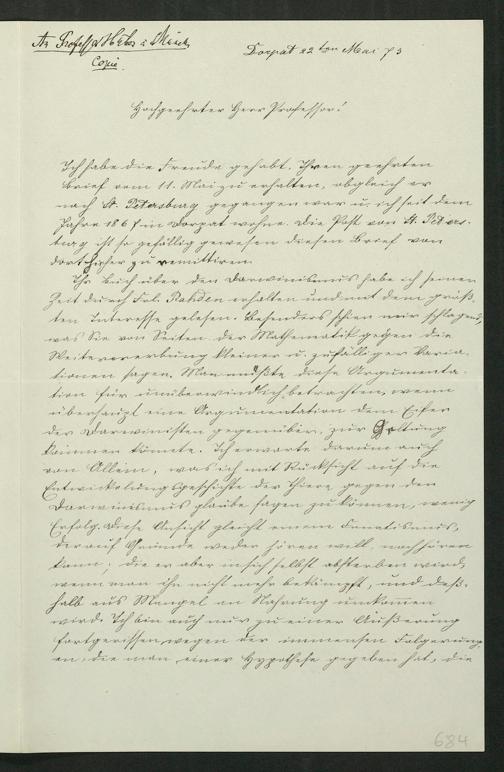 An Professor Huber in Münch.
Copie.
Dorpat 22ten Mai 73
Hochgeehrter Herr Professor!
Ich habe die Freude gehabt, Ihren geehrten
Brief vom 11. Mai zu erhalten, obgleich er
nach St. Petersburg gegangen war u. ich seit dem
Jahre 1867 in Dorpat wohne. Die Post von St. Peters-
burg ist so gefällig gewesen diesen Brief von
dort hieher zu remittiren.
Ihr Buch über den Darwinismus habe ich seiner
Zeit durch Frl. Rahden erhalten und mit dem größ-
ten Interesse gelesen. Besonders schien mir schlagend,
was Sie von Seiten der Mathematik gegen die
Weitervererbung kleiner u. zufälliger Varia-
tionen sagen. Man müßte diese Argumenta-
tion für unüberwindlich betrachten, wenn
überhaupt eine Argumentation dem Eifer
der Darwinisten gegenüber, zur Geltung
kommen könnte. Ich erwarte darum auch
von Allem, was ich mit Rücksicht auf die
Entwickelungsgeschichte der Thiere gegen den
Darwinismus glaube sagen zu können, wenig
Erfolg. Diese Ansicht gleicht einem Fanatismus,
der auf Gründe weder hören will, noch hören
kann, die er aber in sich selbst absterben wird,
wenn man ihn nicht mehr bekämpft, und deß-
halb aus Mangel an Nahrung umkommen
wird. Ich bin auch nur zu einer Äußerung
fortgerissen wegen der immensen Folgerung-
en, die man einer Hypothese gegeben hat, die
684